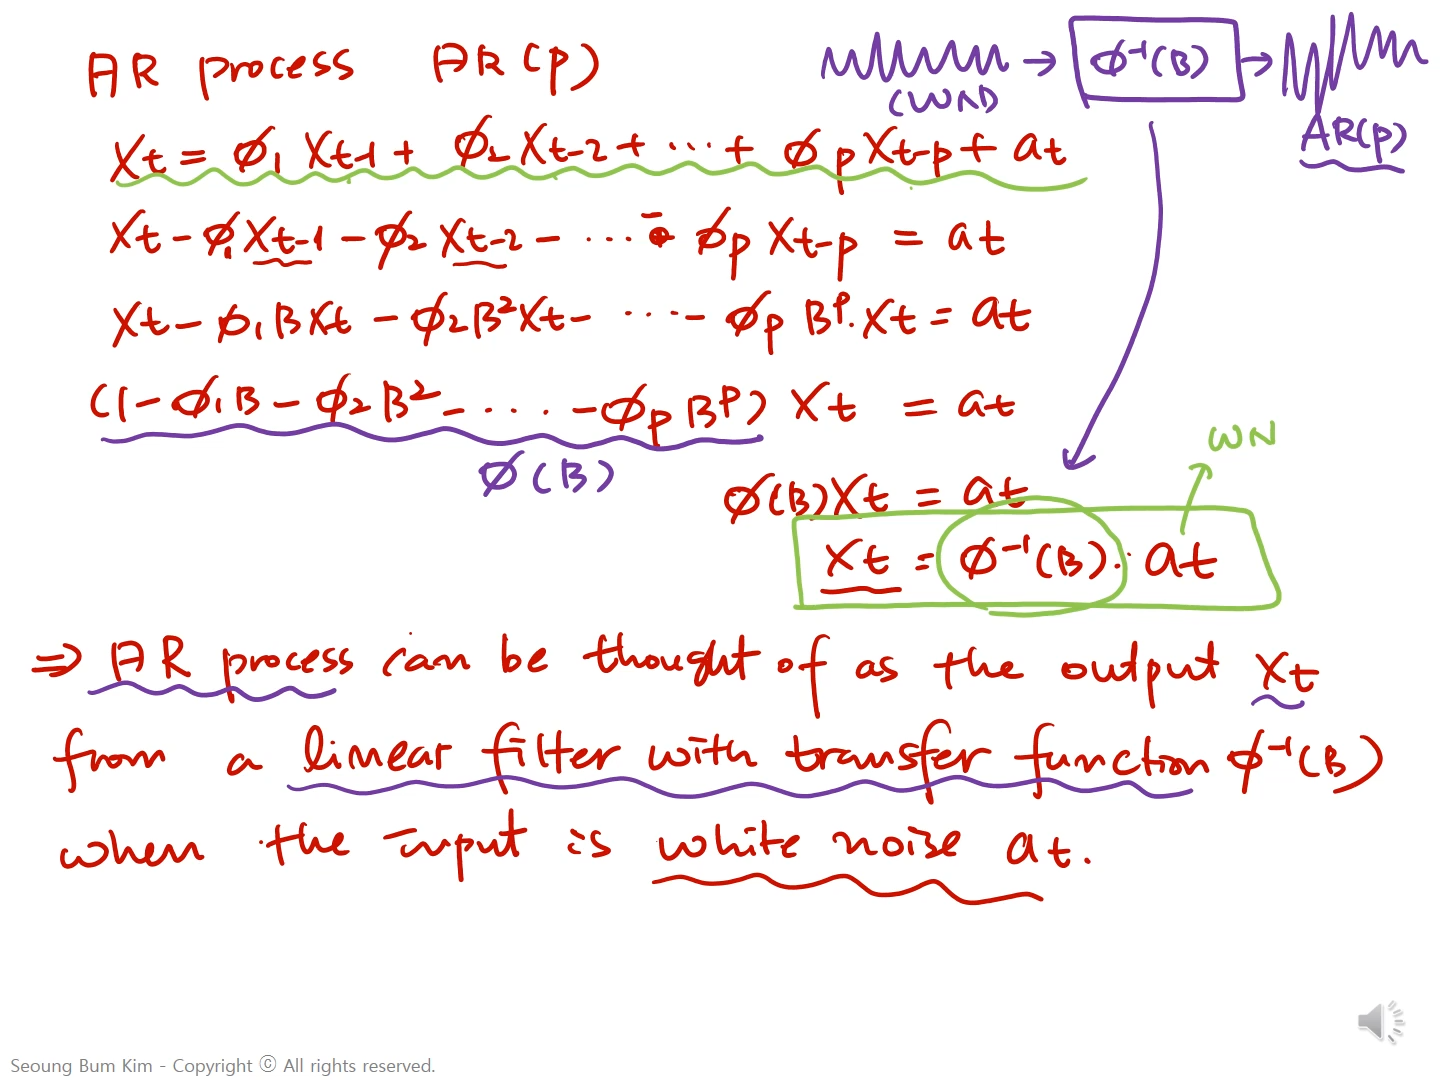 AR process AR(p)
(WN)
→ ϕ⁻¹(B) →
AR(p)
Xt = ϕ₁ Xt-1 + ϕ₂ Xt-2 + ... + ϕp Xt-p + at
Xt - ϕ₁Xt-1 - ϕ₂ Xt-2 - ... - ϕp Xt-p = at
Xt - ϕ₁BXt - ϕ₂B²Xt - ... - ϕp Bᵖ·Xt = at
(1 - ϕ₁B - ϕ₂B² - ... - ϕpBᵖ) Xt = at
ϕ(B)
WN
ϕ(B)Xt = at
Xt = ϕ⁻¹(B)·at
⇒ AR process can be thought of as the output Xt
from a linear filter with transfer function ϕ⁻¹(B)
when the input is white noise at.
Seoung Bum Kim - Copyright ⓒ All rights reserved.